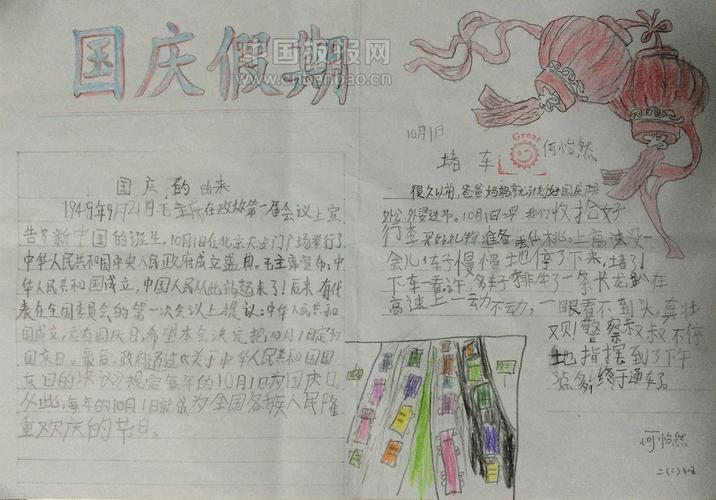 国庆假期
中国板报网
www.cnbanbao.cn
国庆的由来
1949年9月21日,毛主席在政协第一届会议上宣
告了新中国的诞生。10月1日在北京天安门广场举行了
中华人民共和国中央人民政府成立盛典。毛主席宣布:中
华人民共和国成立,中国人民从此站起来了!后来有代
表在全国委员会的第一次会议上提议:中华人民共和
国成立,应有国庆日,希望本会决定把10月1日定为
国庆日。最后,政府通过《关于中华人民共和国国
庆日的决议》规定每年的10月1日为国庆日。
从此,每年的10月1日就成为全国各族人民隆
重欢庆的节日。
10月1日
堵车
Great
何怡然
很久以前,爸爸妈妈就计划好国庆陪
外公外婆过节。10月1日一早我们收拾好
行李买好礼物准备去仙桃。上高速没一
会儿车子慢慢地停了下来,堵了!
下车一看,许多车子排成了一条长龙趴在
高速上一动不动,一眼看不到头,真壮
观!警察叔叔不停
地指挥到了下午
终于通车了。
何怡然